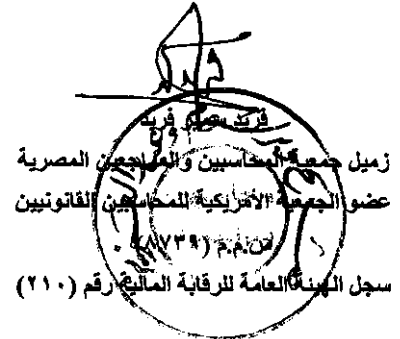 فريد سمير فريد
زميل جمعية المحاسبين والمراجعين المصرية
عضو الجمعية الأمريكية للمحاسبين القانونيين
س.م.م (٨٧٣٩)
سجل الهيئة العامة للرقابة المالية رقم (٢١٠)